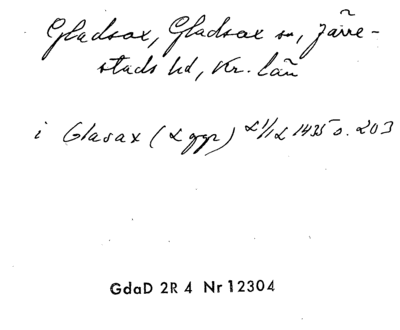 Gladsax, Gladsax sn, Järre-
stads hd, Kr. län
i Glasax (2 ggr) 21/12 1435 s. 203
GdaD 2R 4 Nr 12304